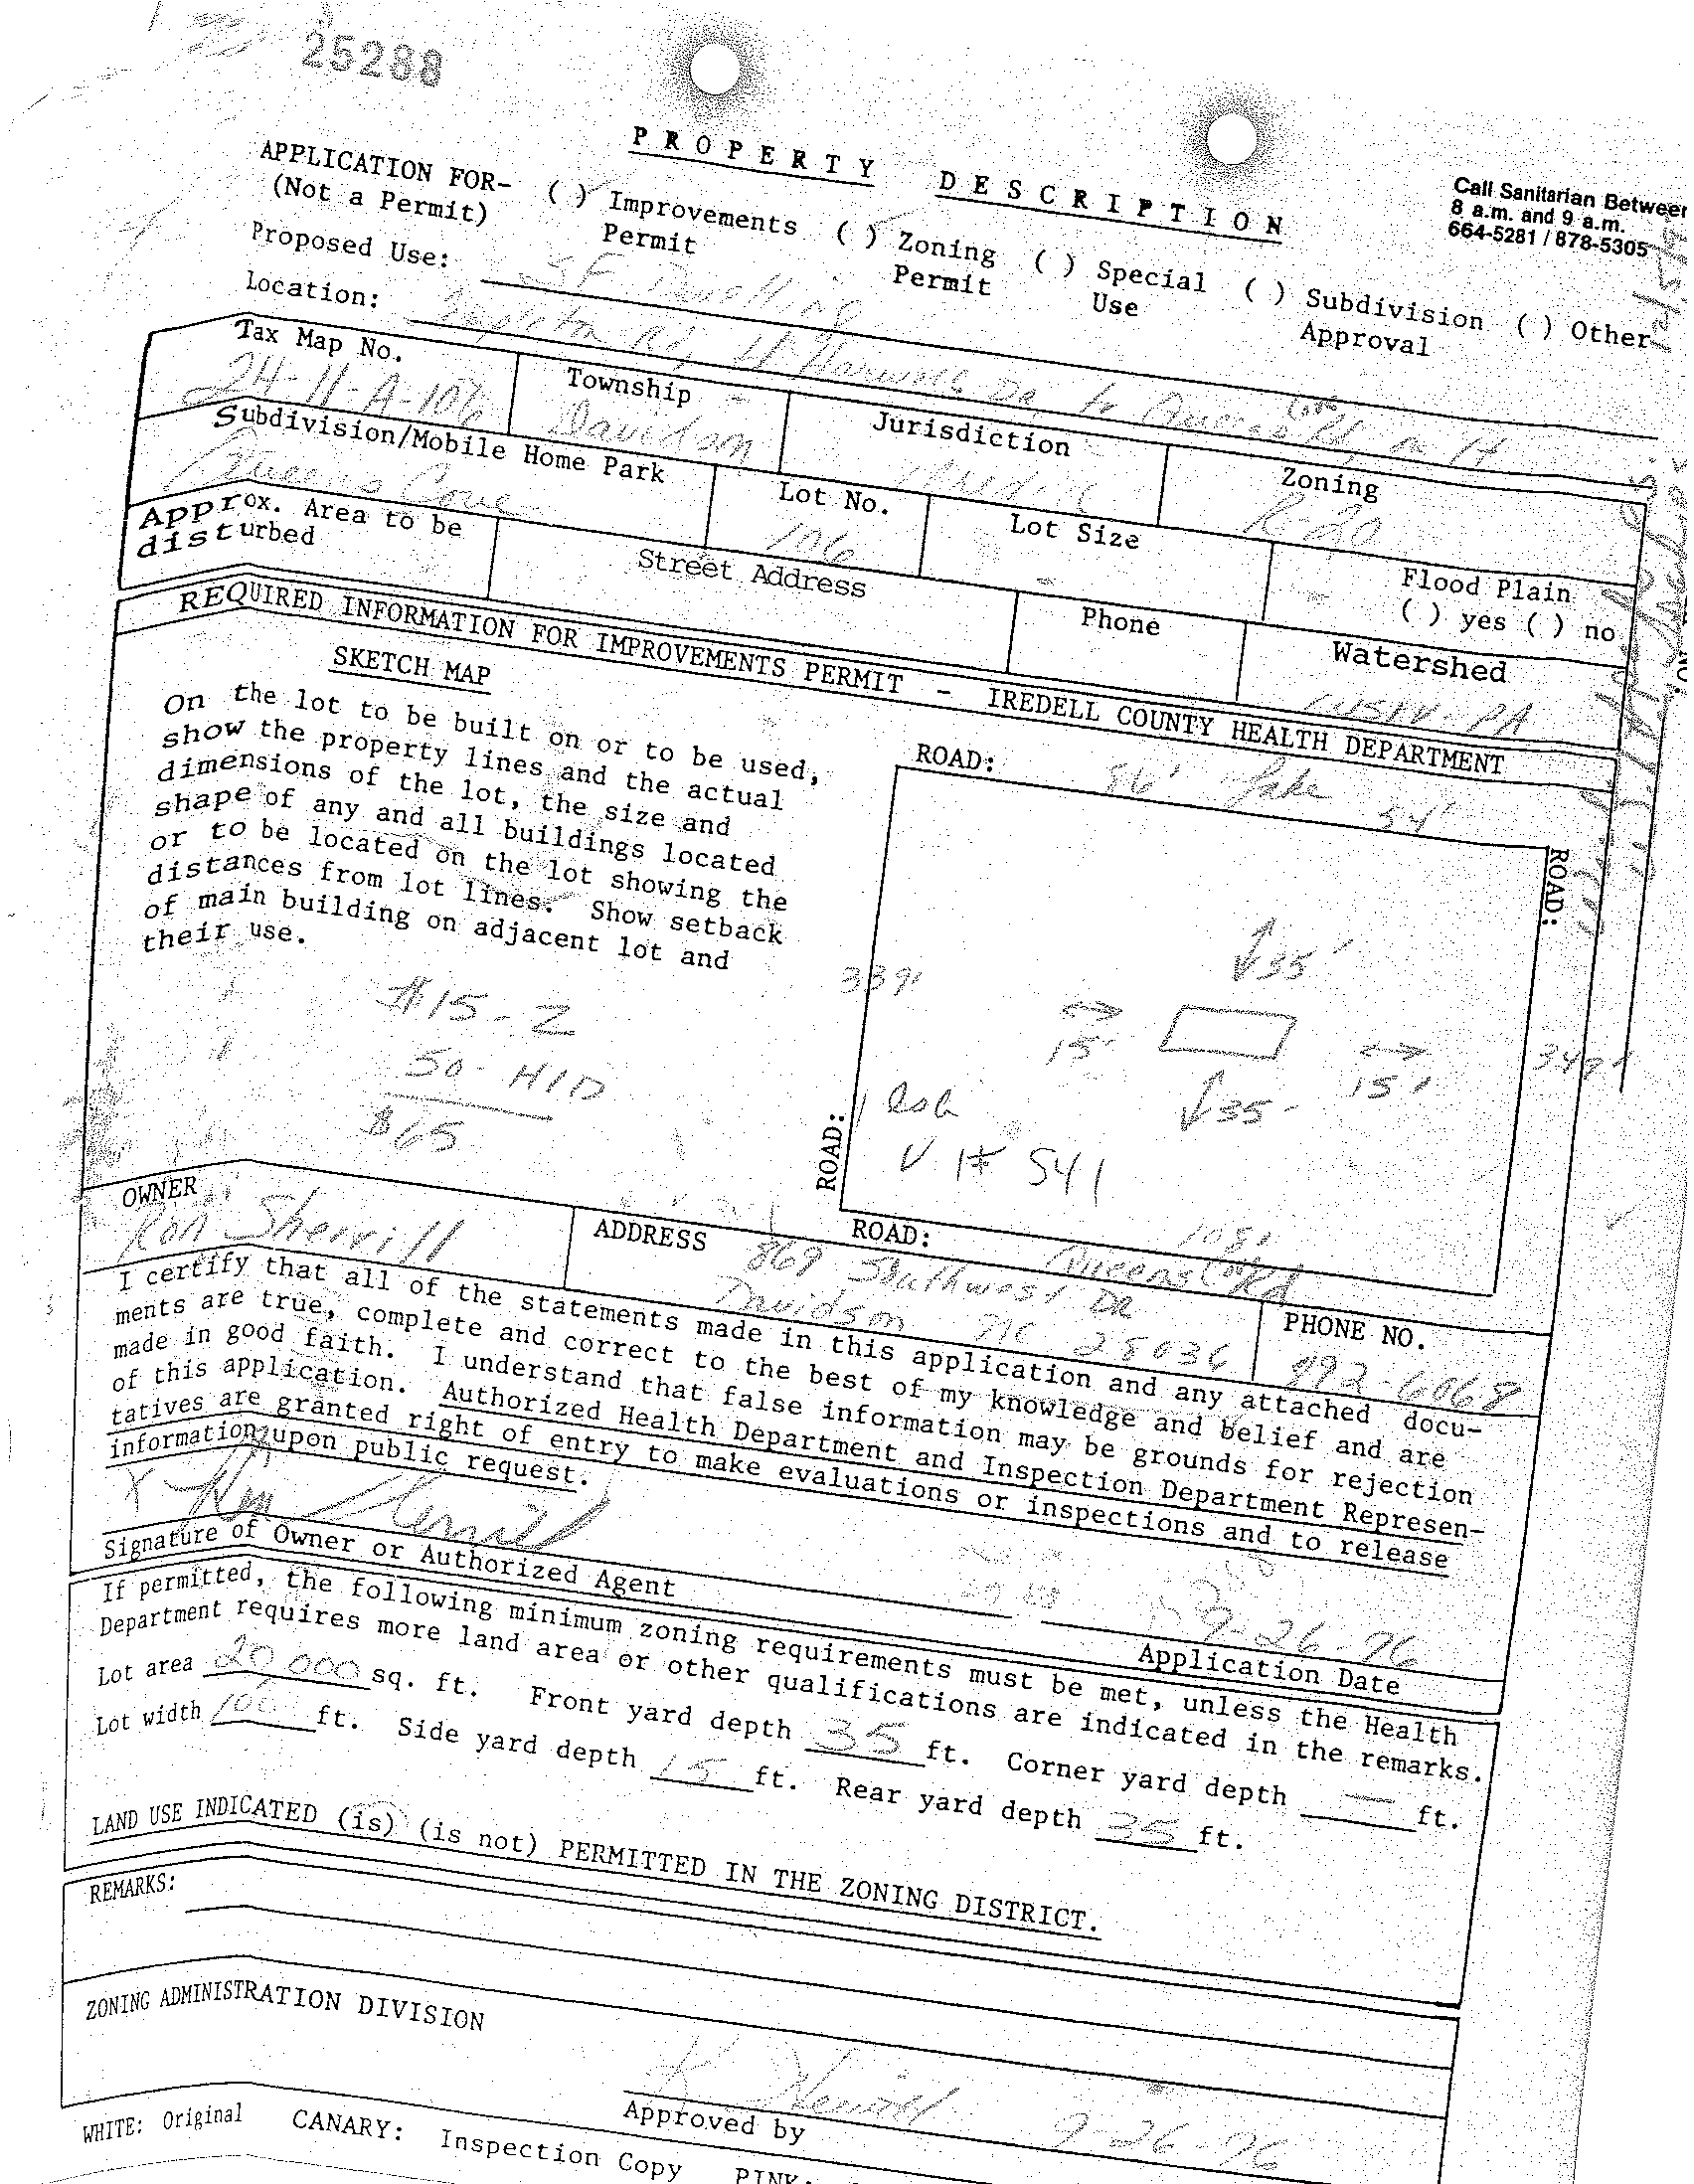 25288
PROPERTY DESCRIPTION
Call Sanitarian Between
8 a.m. and 9 a.m.
664-5281 / 878-5305
APPLICATION FOR- ( ) Improvements ( ) Zoning ( ) Special ( ) Subdivision ( ) Other
(Not a Permit) Permit Permit Use Approval
Proposed Use: SF Dwelling
Location: Rd, Lt Dr, to Queens Cove Rd, on
Tax Map No. Township Jurisdiction Zoning
24-11-A-106 Davidson R-20
Subdivision/Mobile Home Park Lot No. Lot Size Flood Plain
Queens Cove 106 ( ) yes ( ) no
Approx. Area to be Street Address Phone Watershed
disturbed PA
REQUIRED INFORMATION FOR IMPROVEMENTS PERMIT - IREDELL COUNTY HEALTH DEPARTMENT
SKETCH MAP
On the lot to be built on or to be used,
show the property lines and the actual
dimensions of the lot, the size and
shape of any and all buildings located
or to be located on the lot showing the
distances from lot lines. Show setback
of main building on adjacent lot and
their use.
$15-Z
50-HID
$65
ROAD: 86' Lake 54'
ROAD:
35'
339'
15'
15'
349'
35
V 1# 541
ROAD:
ROAD: 108' Queens Cove Rd
OWNER ADDRESS PHONE NO.
Ron Sherrill 869 Southwest DR
Davidson NC 28036 892-6068
I certify that all of the statements made in this application and any attached docu-
ments are true, complete and correct to the best of my knowledge and belief and are
made in good faith. I understand that false information may be grounds for rejection
of this application. Authorized Health Department and Inspection Department Represen-
tatives are granted right of entry to make evaluations or inspections and to release
information upon public request.
X Ron Sherrill
9-26-96
Signature of Owner or Authorized Agent Application Date
If permitted, the following minimum zoning requirements must be met, unless the Health
Department requires more land area or other qualifications are indicated in the remarks.
Lot area 20 000 sq. ft. Front yard depth 35 ft. Corner yard depth — ft.
Lot width 100 ft. Side yard depth 15 ft. Rear yard depth 35 ft.
LAND USE INDICATED (is) (is not) PERMITTED IN THE ZONING DISTRICT.
REMARKS:
ZONING ADMINISTRATION DIVISION
9-26-96
Approved by
WHITE: Original CANARY: Inspection Copy PINK: